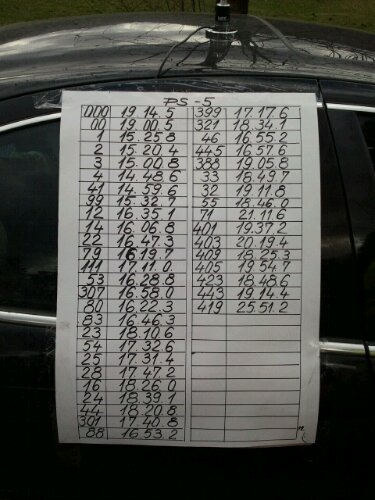 PS-5
000 19.14.5
00 19.00.5
1 15.25.8
2 15.20.4
3 15.00.8
4 14.48.6
41 14.59.6
99 15.32.7
12 16.35.1
14 16.06.8
22 16.47.3
79 16.19.7
111 17.11.0
53 16.28.8
307 16.58.0
80 16.22.3
83 16.46.3
23 18.31.6
54 17.32.6
25 17.31.4
28 17.47.2
16 18.26.0
24 18.39.1
44 18.20.8
301 17.40.8
88 16.53.2
399 17.17.6
321 18.34.7
46 16.55.2
445 16.57.6
388 19.05.8
33 18.49.7
32 19.11.8
55 18.46.0
71 21.11.6
401 19.37.2
403 20.19.4
409 18.25.3
405 19.54.7
423 18.48.6
443 19.14.4
419 25.51.2